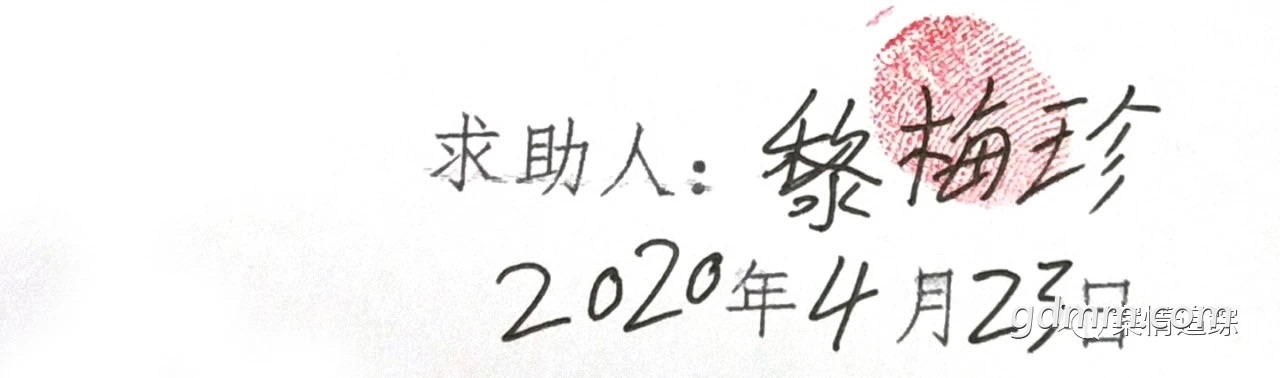 求助人：黎梅珍
2020年4月23日
gdmm.com